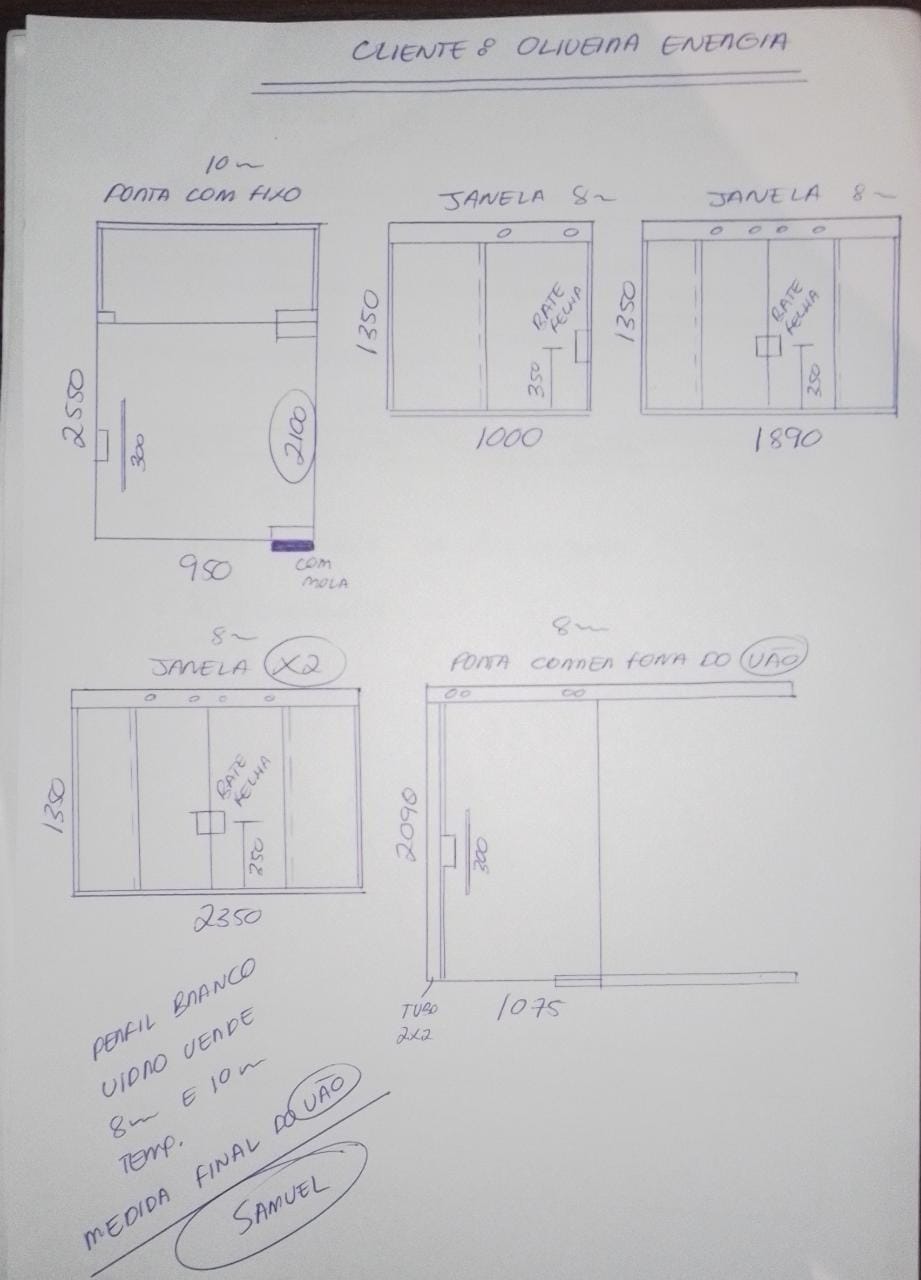 CLIENTE: OLIVEIRA ENERGIA
10m
PORTA COM FIXO
2550
300
2100
950
COM
MOLA
JANELA 8m
1350
BATE
FECHA
350
1000
JANELA 8m
1350
BATE
FECHA
350
1890
8m
JANELA X2
1350
BATE
FECHA
350
2350
8m
PORTA CORRER FORA DO VÃO
2090
300
TUBO
2X2
1075
PERFIL BRANCO
VIDRO VERDE
8m E 10m
TEMP.
MEDIDA FINAL DO VÃO
SAMUEL